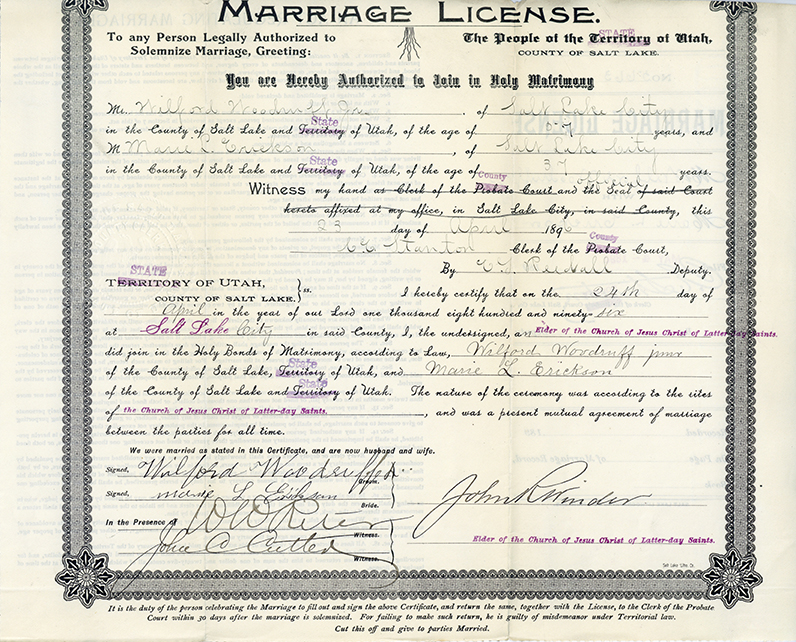 MARRIAGE LICENSE.
To any Person Legally Authorized to
Solemnize Marriage, Greeting:
The People of the Territory of Utah,
STATE
COUNTY OF SALT LAKE.
You are Hereby Authorized to Join in Holy Matrimony
Mr. Wilford Woodruff Jr. of Salt Lake City
State
in the County of Salt Lake and Territory of Utah, of the age of years, and
M Marie L. Erickson , of Salt Lake City
State
in the County of Salt Lake and Territory of Utah, of the age of 37 years.
County official
Witness my hand as Clerk of the Probate Court and the Seal of said Court
hereto affixed at my office, in Salt Lake City, in said County, this
23 day of April 1896
County
Stanton Clerk of the Probate Court,
By Deputy.
STATE
TERRITORY OF UTAH, } ss.
COUNTY OF SALT LAKE.
I hereby certify that on the 24th day of
April in the year of our Lord one thousand eight hundred and ninety-six
at Salt Lake City in said County, I, the undersigned, an Elder of the Church of Jesus Christ of Latter-day Saints.
did join in the Holy Bonds of Matrimony, according to Law, Wilford Woodruff junr
State
of the County of Salt Lake, Territory of Utah, and Marie L. Erickson
State
of the County of Salt Lake and Territory of Utah. The nature of the ceremony was according to the rites
of the Church of Jesus Christ of Latter-day Saints. , and was a present mutual agreement of marriage
between the parties for all time.
We were married as stated in this Certificate, and are now husband and wife.
Signed, Wilford Woodruff Jr. Groom.
Signed, Marie L Erickson Bride.
In the Presence of Witness.
John C Cutler Witness.
John R Winder
Elder of the Church of Jesus Christ of Latter-day Saints.
Salt Lake Litho. Co.
It is the duty of the person celebrating the Marriage to fill out and sign the above Certificate, and return the same, together with the License, to the Clerk of the Probate
Court within 30 days after the marriage is solemnized. For failing to make such return, he is guilty of misdemeanor under Territorial law.
Cut this off and give to parties Married.